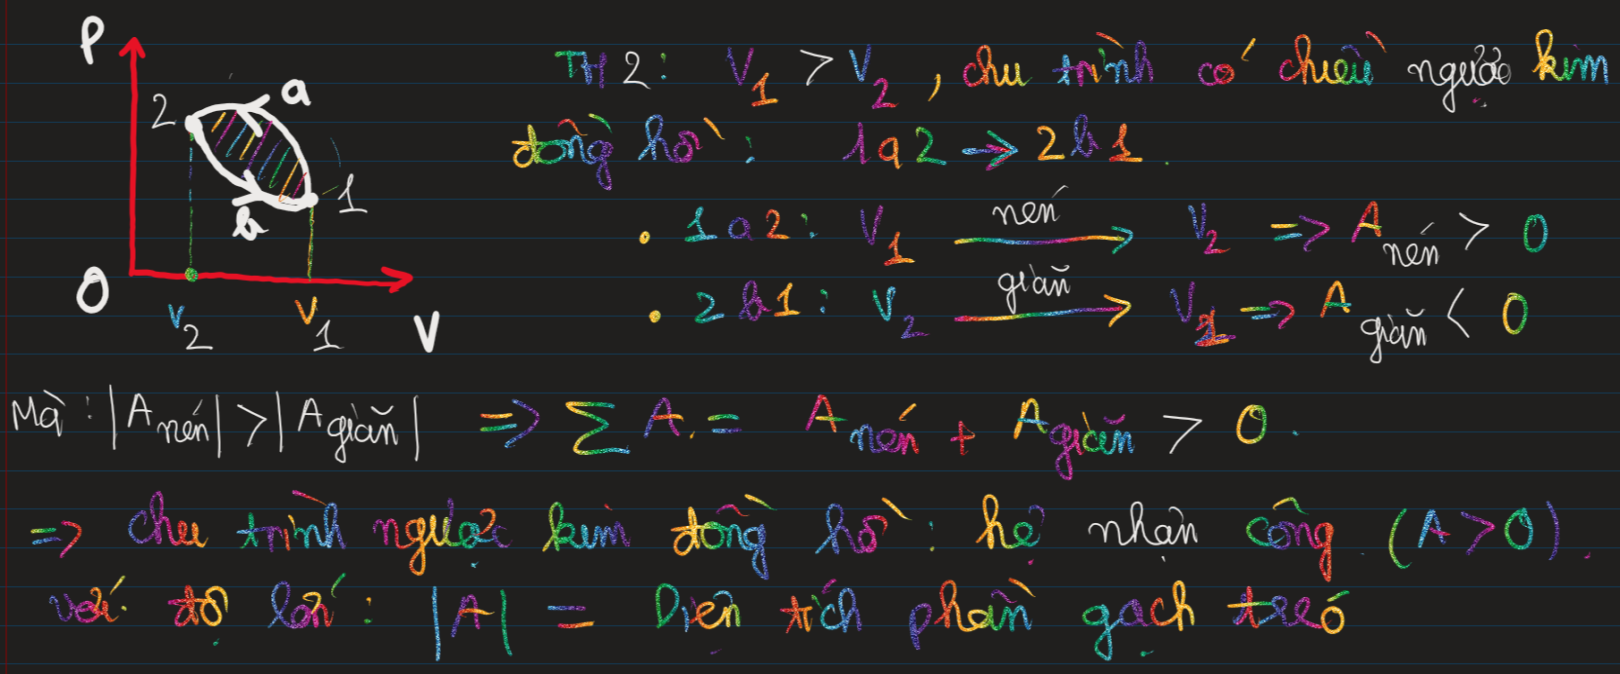 P
a
2
1
b
O
V₂
V₁
V
TH 2: V₁ > V₂, chu trình có chiều ngược kim
đồng hồ: 1a2 → 2b1.
• 1a2: V₁ nén → V₂ => A nén > 0
• 2b1: V₂ giãn → V₁ => A giãn < 0
Mà: |A nén| > |A giãn| => ∑ A = A nén + A giãn > 0.
=> chu trình ngược kim đồng hồ: hệ nhận công (A > 0).
với độ lớn: |A| = Diện tích phần gạch treó